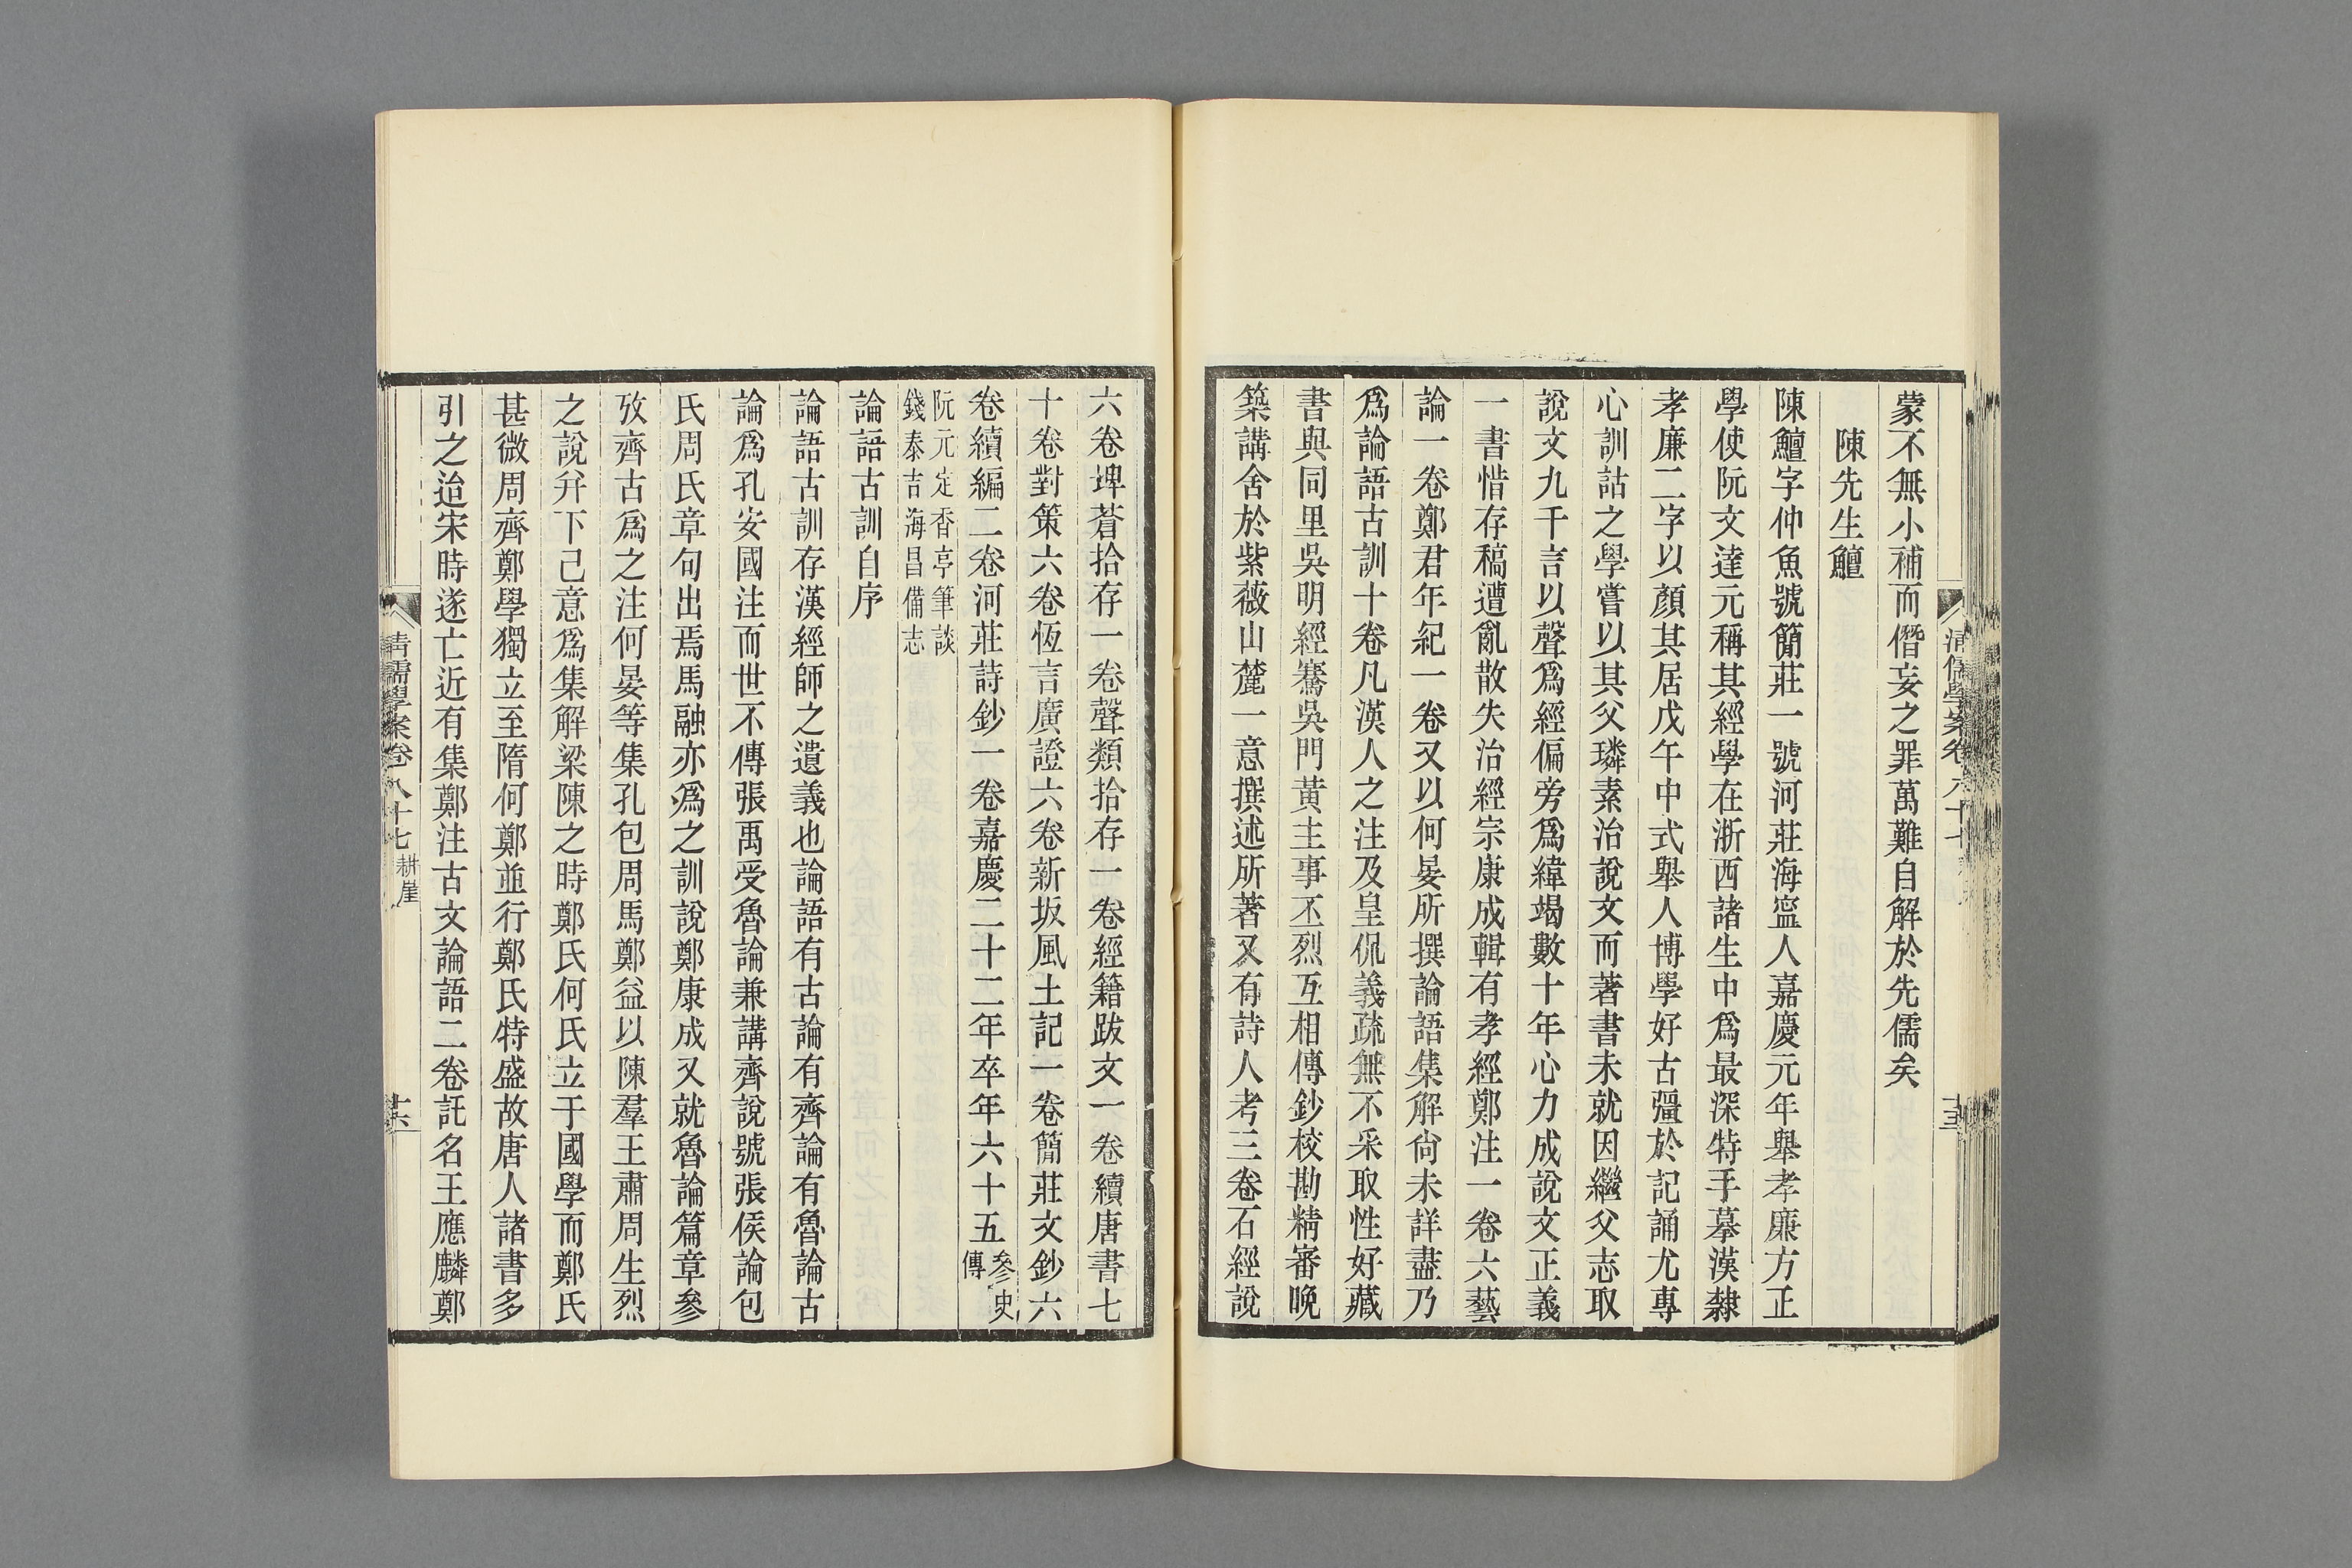 蒙不無小補而僭妄之罪萬難自解於先儒矣
陳先生鱣
陳鱣字仲魚號簡莊一號河莊海寍人嘉慶元年舉孝廉方正
學使阮文達元稱其經學在浙西諸生中爲最深特手摹漢隸
孝廉二字以顏其居戊午中式舉人博學好古彊於記誦尤專
心訓詁之學嘗以其父璘素治說文而著書未就因繼父志取
說文九千言以聲爲經偏旁爲緯竭數十年心力成說文正義
一書惜存稿遭亂散失治經宗康成輯有孝經鄭注一卷六藝
論一卷鄭君年紀一卷又以何晏所撰論語集解尙未詳盡乃
爲論語古訓十卷凡漢人之注及皇侃義疏無不采取性好藏
書與同里吳明經騫吳門黃主事丕烈互相傳鈔校勘精審晚
築講舍於紫薇山麓一意撰述所著又有詩人考三卷石經說
六卷埤蒼拾存一卷聲類拾存一卷經籍跋文一卷續唐書七
十卷對策六卷恆言廣證六卷新坂風土記一卷簡莊文鈔六
卷續編二卷河莊詩鈔一卷嘉慶二十二年卒年六十五參史傳
阮元定香亭筆談
錢泰吉海昌備志
論語古訓自序
論語古訓存漢經師之遺義也論語有古論有齊論有魯論古
論爲孔安國注而世不傳張禹受魯論兼講齊說號張侯論包
氏周氏章句出焉馬融亦爲之訓說鄭康成又就魯論篇章參
攷齊古爲之注何晏等集孔包周馬鄭益以陳羣王肅周生烈
之說幷下己意爲集解梁陳之時鄭氏何氏立于國學而鄭氏
甚微周齊鄭學獨立至隋何鄭並行鄭氏特盛故唐人諸書多
引之迨宋時遂亡近有集鄭注古文論語二卷託名王應麟鄭
清儒學案卷八十七 耕崖 十六